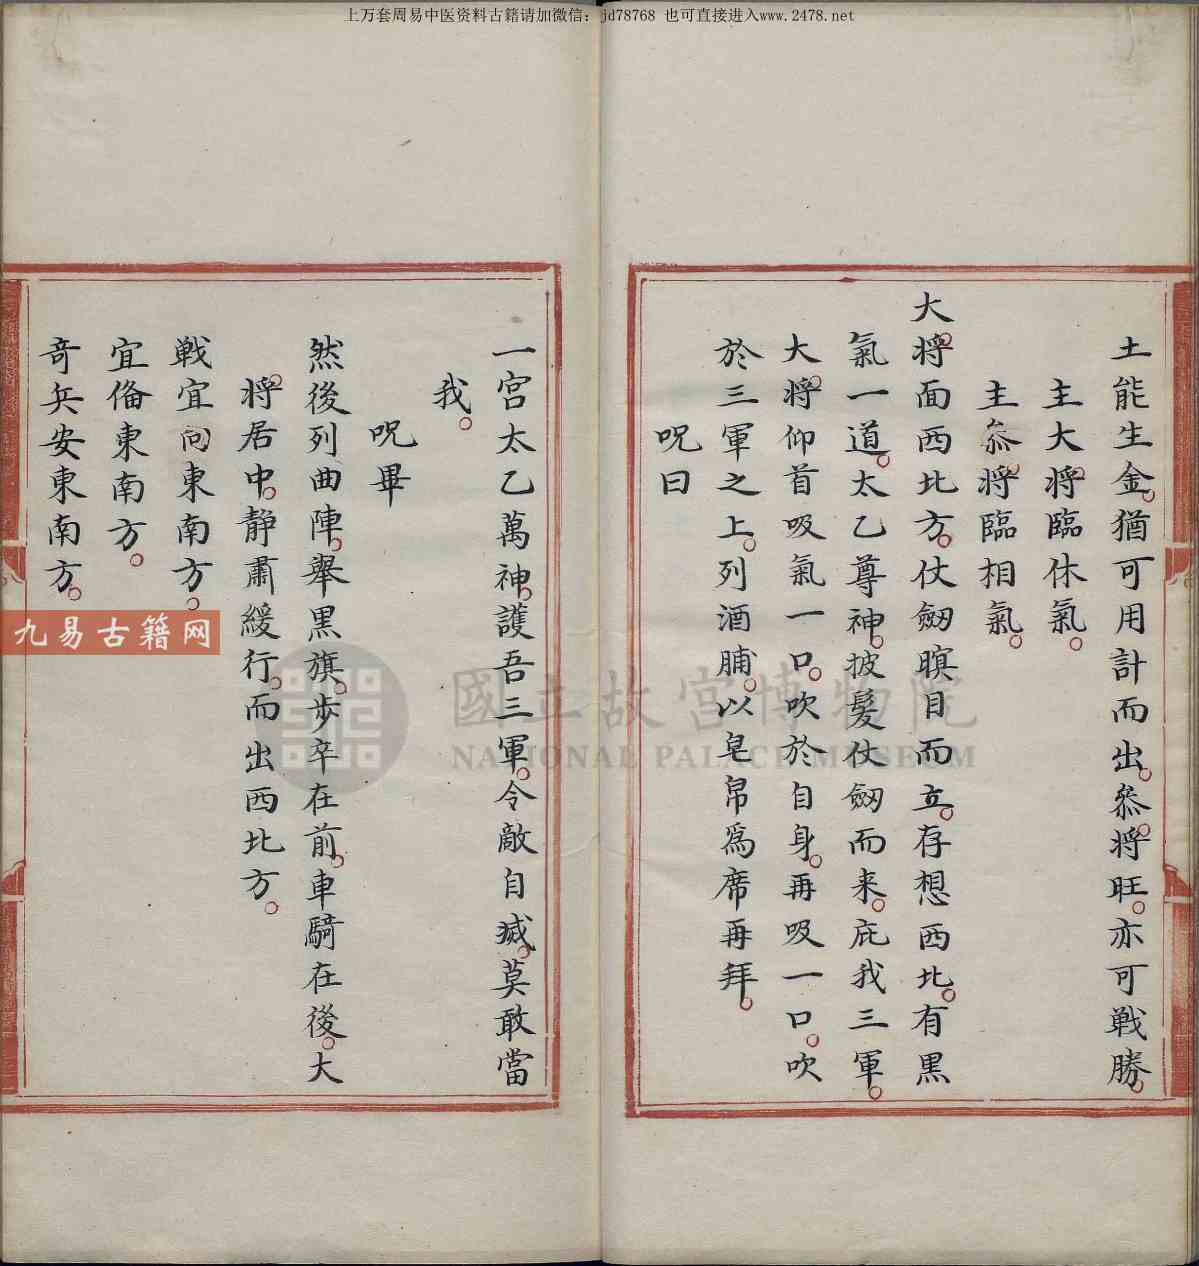 上万套周易中医资料古籍请加微信：jd78768 也可直接进入www.2478.net
土能生金。猶可用計而出。叅将旺。亦可戦勝。
主大将臨休氣。
主叅将臨相氣。
大将面西北方。仗劒瞑目而立。存想西北。有黑
氣一道。太乙尊神。披髮仗劒而来。庇我三軍。
大将仰首吸氣一口。吹於自身。再吸一口。吹
於三軍之上。列酒脯。以皂帛為席再拜。
呪曰
一宮太乙萬神。護吾三軍。令敵自滅。莫敢當
我。
呪畢
然後列曲陣。舉黑旗。步卒在前。車騎在後。大
将居中。静肅緩行。而出西北方。
戦宜向東南方。
宜俻東南方。
奇兵安東南方。
九易古籍网
國立故宮博物院
NATIONAL PALACE MUSEUM